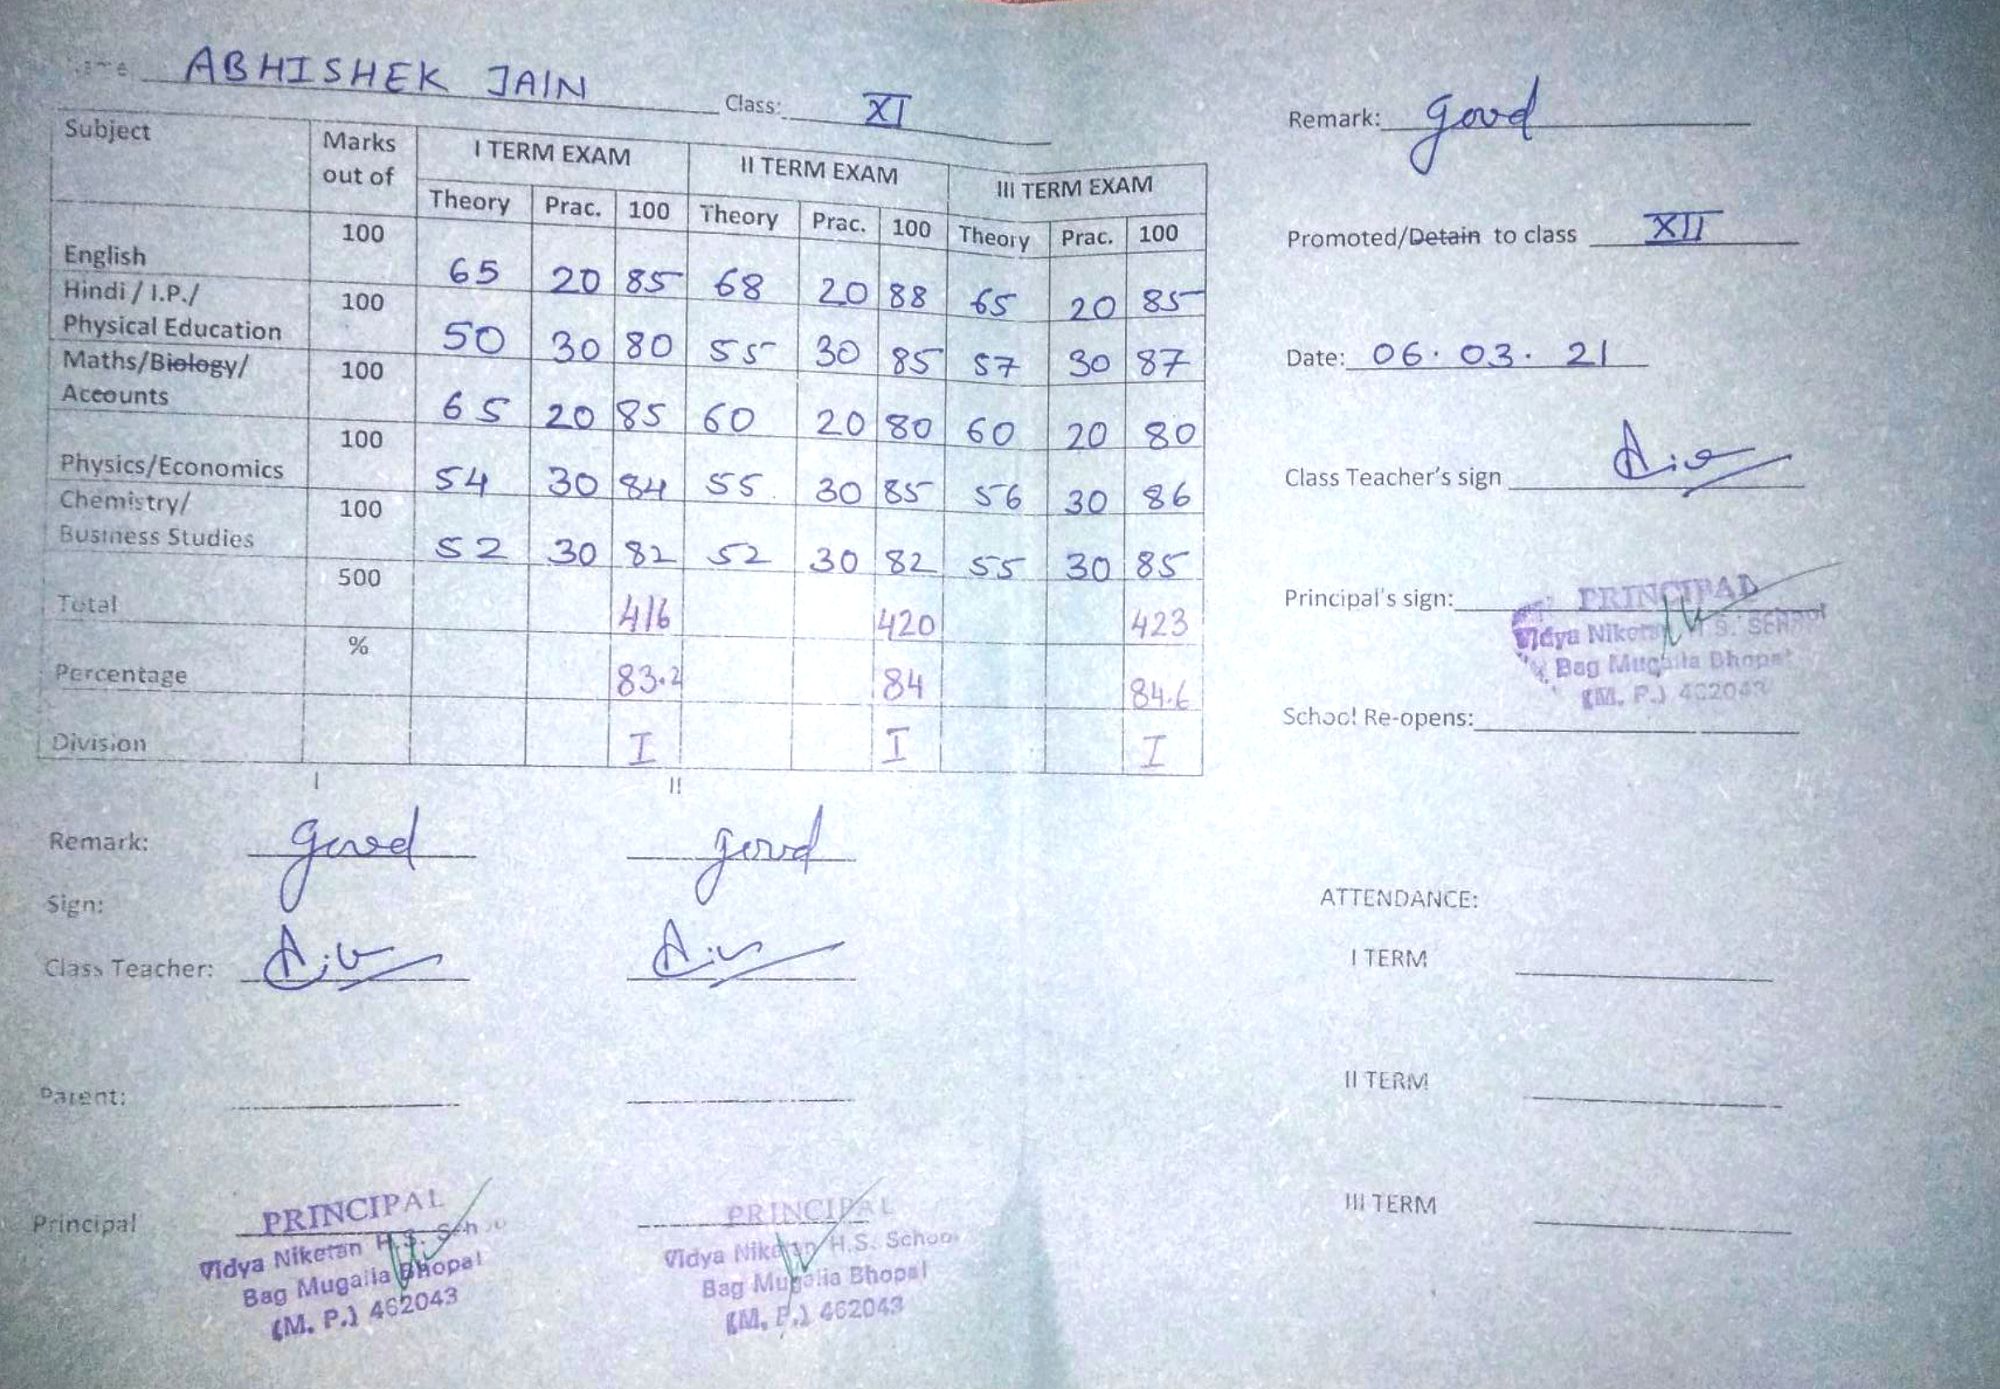 Name ABHISHEK JAIN Class: XI
Subject Marks out of I TERM EXAM II TERM EXAM III TERM EXAM
Theory Prac. 100 Theory Prac. 100 Theory Prac. 100
English 100 65 20 85 68 20 88 65 20 85
Hindi / I.P./
Physical Education 100 50 30 80 55 30 85 57 30 87
Maths/Biology/
Accounts 100 65 20 85 60 20 80 60 20 80
Physics/Economics 100 54 30 84 55 30 85 56 30 86
Chemistry/
Business Studies 100 52 30 82 52 30 82 55 30 85
Total 500 416 420 423
Percentage % 83.2 84 84.6
Division I I I
I II
Remark: good good
Sign:
Class Teacher:
Parent:
Principal
PRINCIPAL
Vidya Niketan H.S. School
Bag Mugalia Bhopal
(M. P.) 462043
PRINCIPAL
Vidya Niketan H.S. School
Bag Mugalia Bhopal
(M. P.) 462043
Remark: good
Promoted/Detain to class XII
Date: 06.03.21
Class Teacher's sign
Principal's sign:
PRINCIPAL
Vidya Niketan H.S. SCHOOL
Bag Mugalia Bhopal
(M. P.) 462043
School Re-opens:
ATTENDANCE:
I TERM
II TERM
III TERM